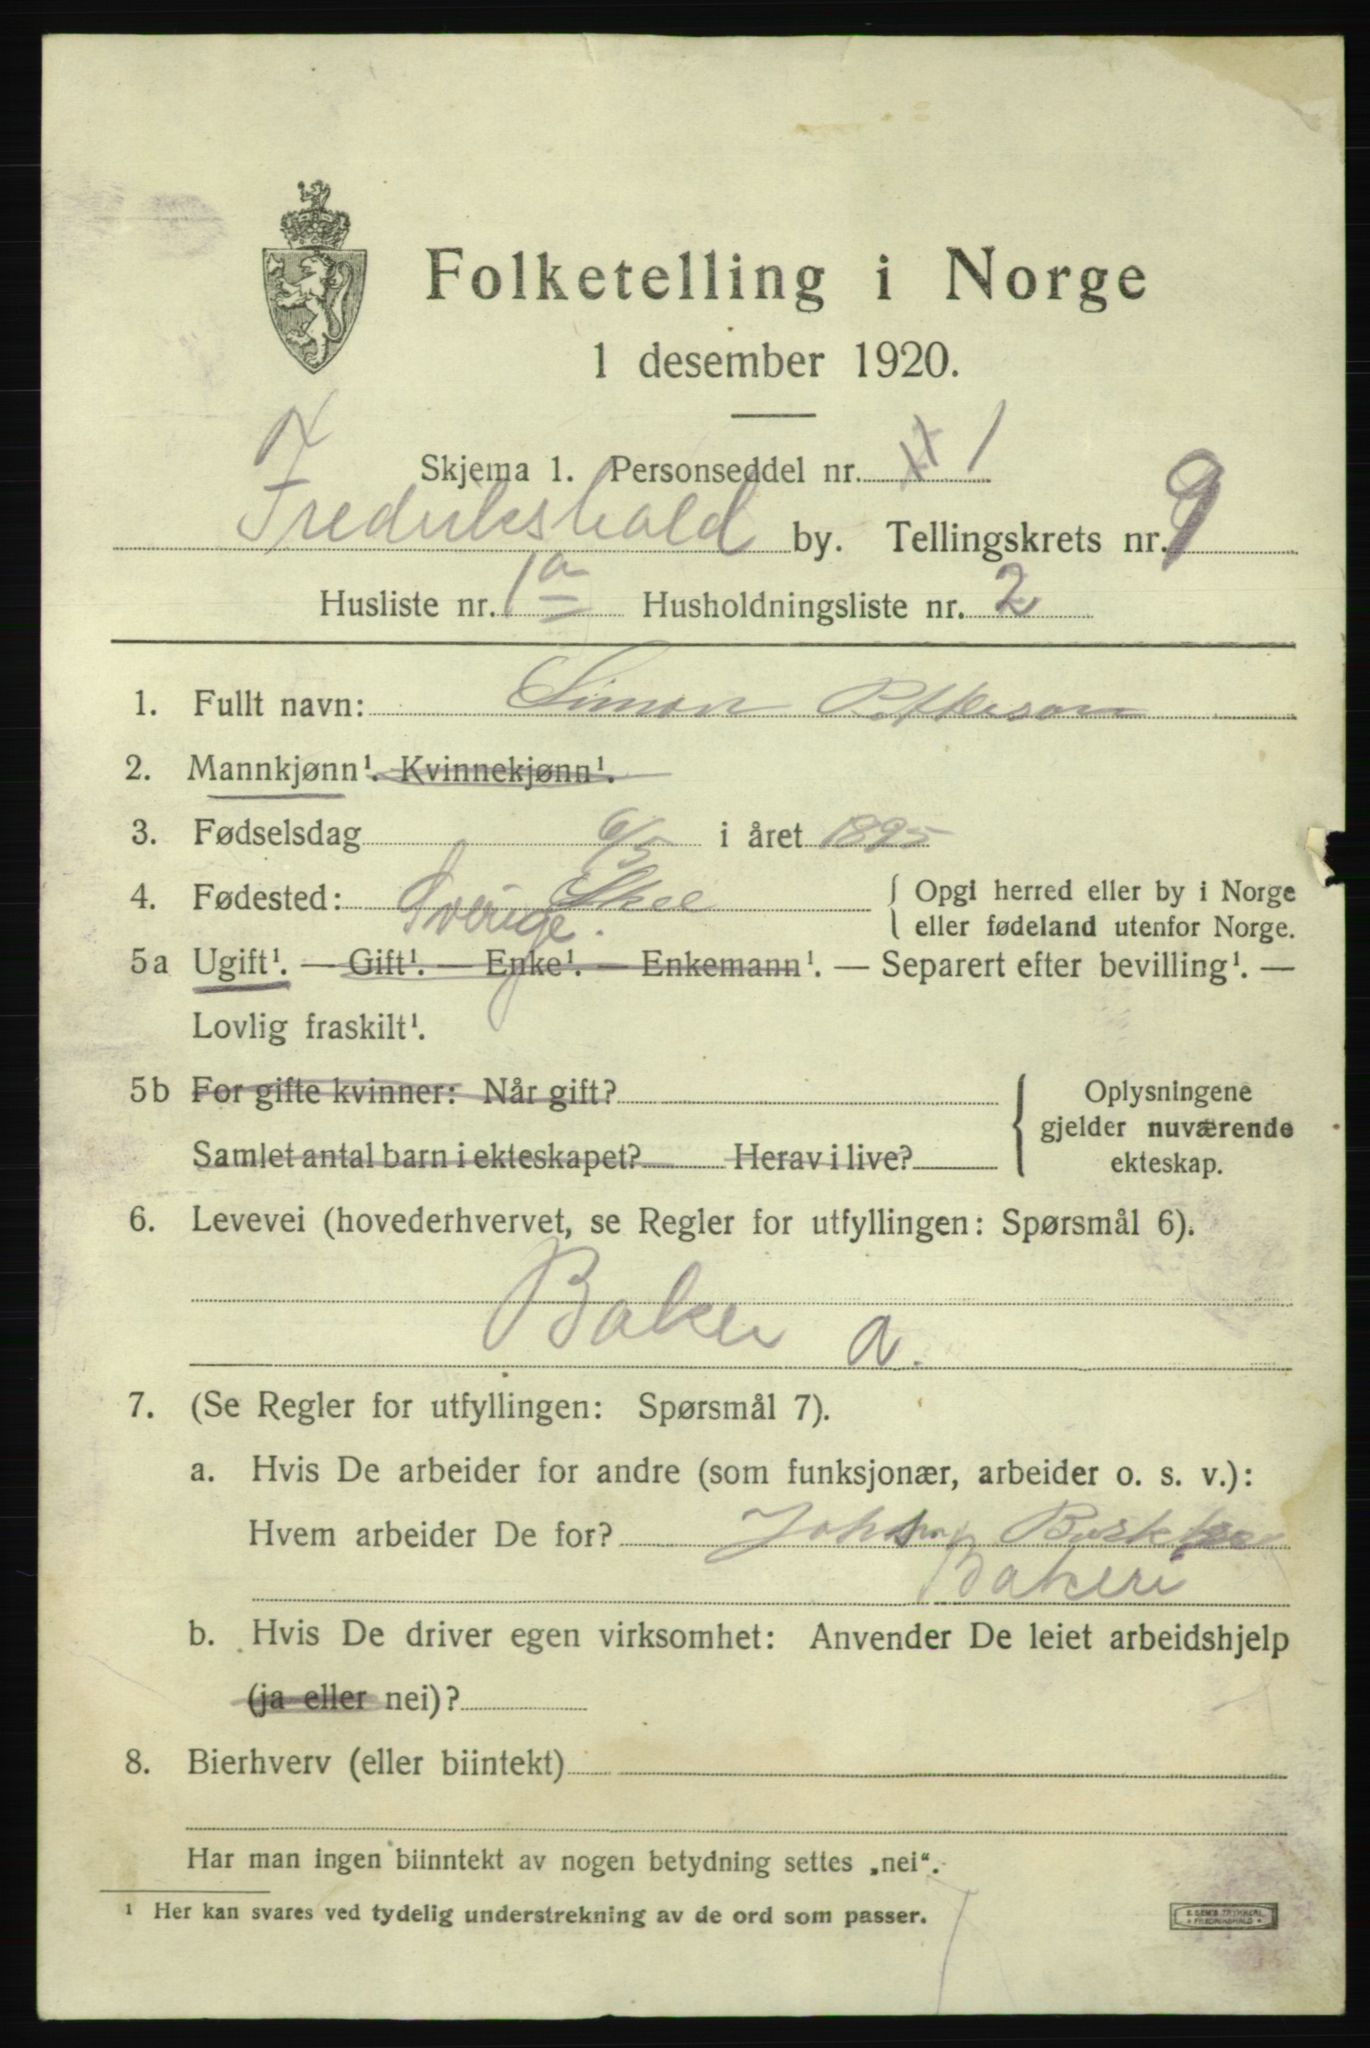 Folketelling i Norge
1 desember 1920.
Skjema 1. Personseddel nr. 1
Fredrikshald by. Tellingskrets nr. 9
Husliste nr. 1a Husholdningsliste nr. 2
1. Fullt navn: Simon
2. Mannkjønn¹. Kvinnekjønn¹.
3. Fødselsdag 6/5 i året 1895
4. Fødested: Skee { Opgi herred eller by i Norge
Sverige. eller fødeland utenfor Norge.
5a Ugift¹. — Gift¹. — Enke¹. — Enkemann¹. — Separert efter bevilling¹. —
Lovlig fraskilt¹.
5b For gifte kvinner: Når gift? Oplysningene
gjelder nuværende
Samlet antal barn i ekteskapet? Herav i live? ekteskap.
6. Levevei (hovederhvervet, se Regler for utfyllingen: Spørsmål 6).
Baker a.
7. (Se Regler for utfyllingen: Spørsmål 7).
a. Hvis De arbeider for andre (som funksjonær, arbeider o. s. v.):
Hvem arbeider De for?
Bakeri
b. Hvis De driver egen virksomhet: Anvender De leiet arbeidshjelp
(ja eller nei)?
8. Bierhverv (eller biintekt)
Har man ingen biinntekt av nogen betydning settes „nei“.
¹ Her kan svares ved tydelig understrekning av de ord som passer.